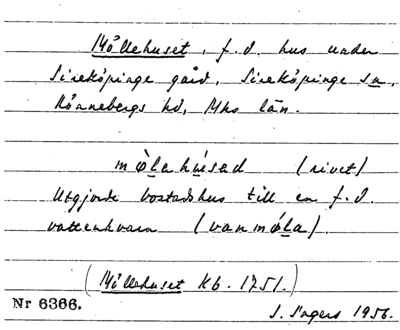 Möllehuset, f.d. hus under
Sireköpinge gård, Sireköpinge sn,
Rönnebergs hd, Mhs län.
mø̀lahúsad (rivet)
Utgjorde bostadshus till en f.d.
vattenkvarn (vanmǿla).
(Möllehuset Kb. 1751.)
Nr 6366.
1956.